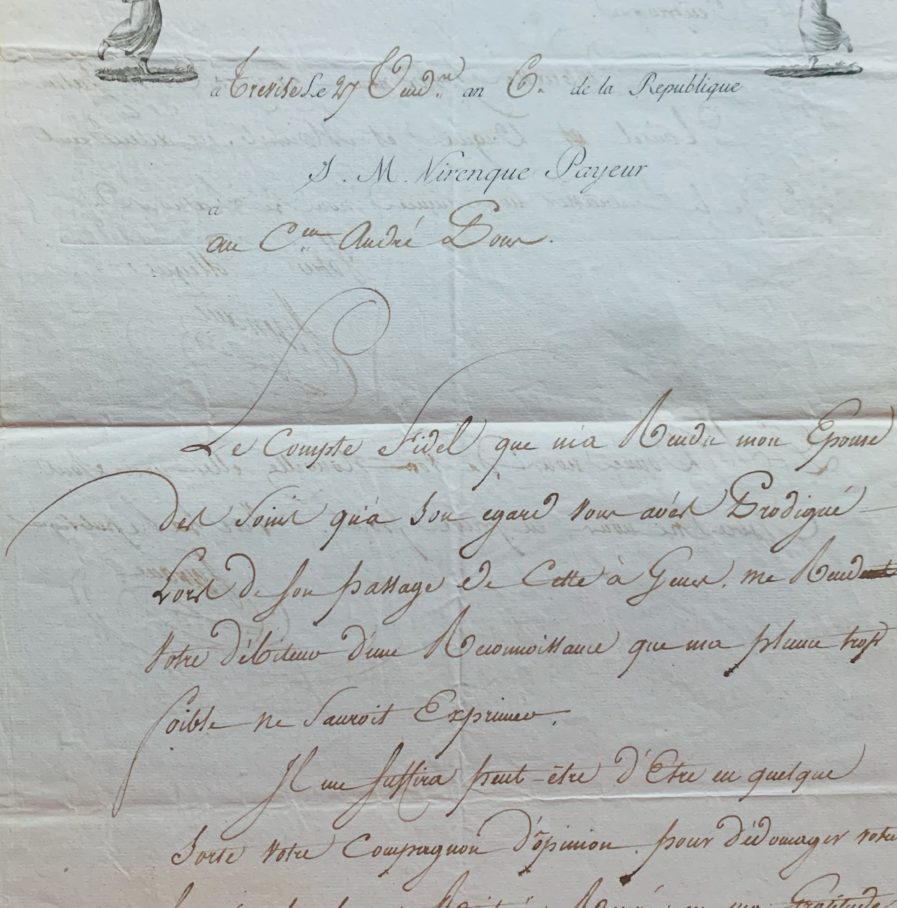 à Trevise Le 27 Vend.re an 6.e de la Republique
J. M. Nirenque Payeur
à
au C.en André
Le Compte fidel que m'a Rendu mon Epouse
des soins qu'a son egard vous avés Prodigué
Lors de son passage de Cette à Genes. me Rend
votre débiteur d'une Reconnoissance que ma plume trop
foible ne sauroit Exprimer.
Il me suffira peut-être d'Etre en quelque
sorte votre Compagnon d'opinion pour dédomager votre
ma Gratitude